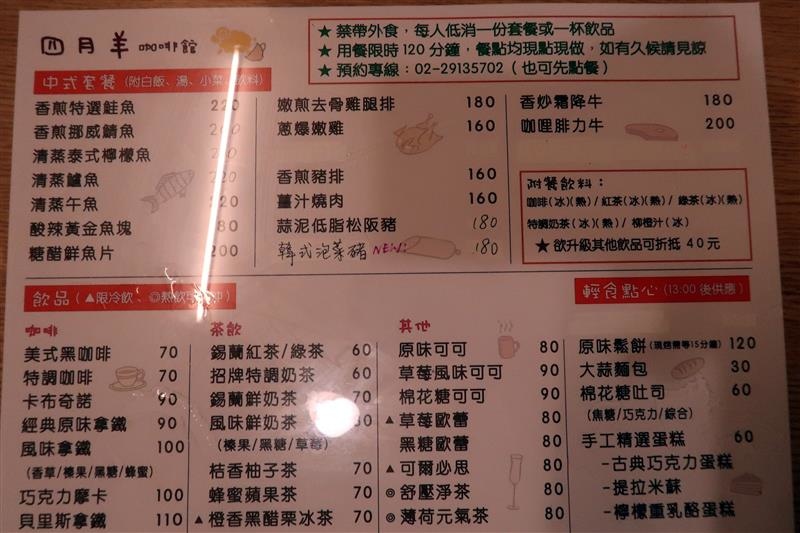 四月羊 咖啡館
★ 禁帶外食，每人低消一份套餐或一杯飲品
★ 用餐限時120分鐘，餐點均現點現做，如有久候請見諒
★ 預約專線：02-29135702（也可先點餐）
中式套餐（附白飯、湯、小菜、飲料）
香煎特選鮭魚 220
香煎挪威鯖魚
清蒸泰式檸檬魚
清蒸鱸魚 220
清蒸午魚 220
酸辣黃金魚塊
糖醋鮮魚片 200
嫩煎去骨雞腿排 180
蔥爆嫩雞 160
香煎豬排 160
薑汁燒肉 160
蒜泥低脂松阪豬 180
韓式泡菜豬 NEW! 180
香炒霜降牛 180
咖哩腓力牛 200
附餐飲料：
咖啡(冰)(熱)/紅茶(冰)(熱)/綠茶(冰)(熱)
特調奶茶(冰)(熱)/柳橙汁(冰)
★ 欲升級其他飲品可折抵40元
飲品（▲限冷飲、◎熱飲
咖啡
美式黑咖啡 70
特調咖啡 70
卡布奇諾 90
經典原味拿鐵 90
風味拿鐵 100
(香草/榛果/黑糖/蜂蜜)
巧克力摩卡 100
貝里斯拿鐵 110
茶飲
錫蘭紅茶/綠茶 60
招牌特調奶茶 60
錫蘭鮮奶茶 70
風味鮮奶茶 80
(榛果/黑糖/草莓)
桔香柚子茶 70
蜂蜜蘋果茶 70
▲橙香黑醋栗冰茶 70
其他
原味可可 80
草莓風味可可 90
棉花糖可可 90
▲草莓歐蕾 80
黑糖歐蕾 80
▲可爾必思 80
◎舒壓淨茶 80
◎薄荷元氣茶 80
輕食點心（13:00後供應）
原味鬆餅(現烤需等15分鐘) 120
大蒜麵包 30
棉花糖吐司 60
(焦糖/巧克力/綜合)
手工精選蛋糕 60
-古典巧克力蛋糕
-提拉米蘇
-檸檬重乳酪蛋糕